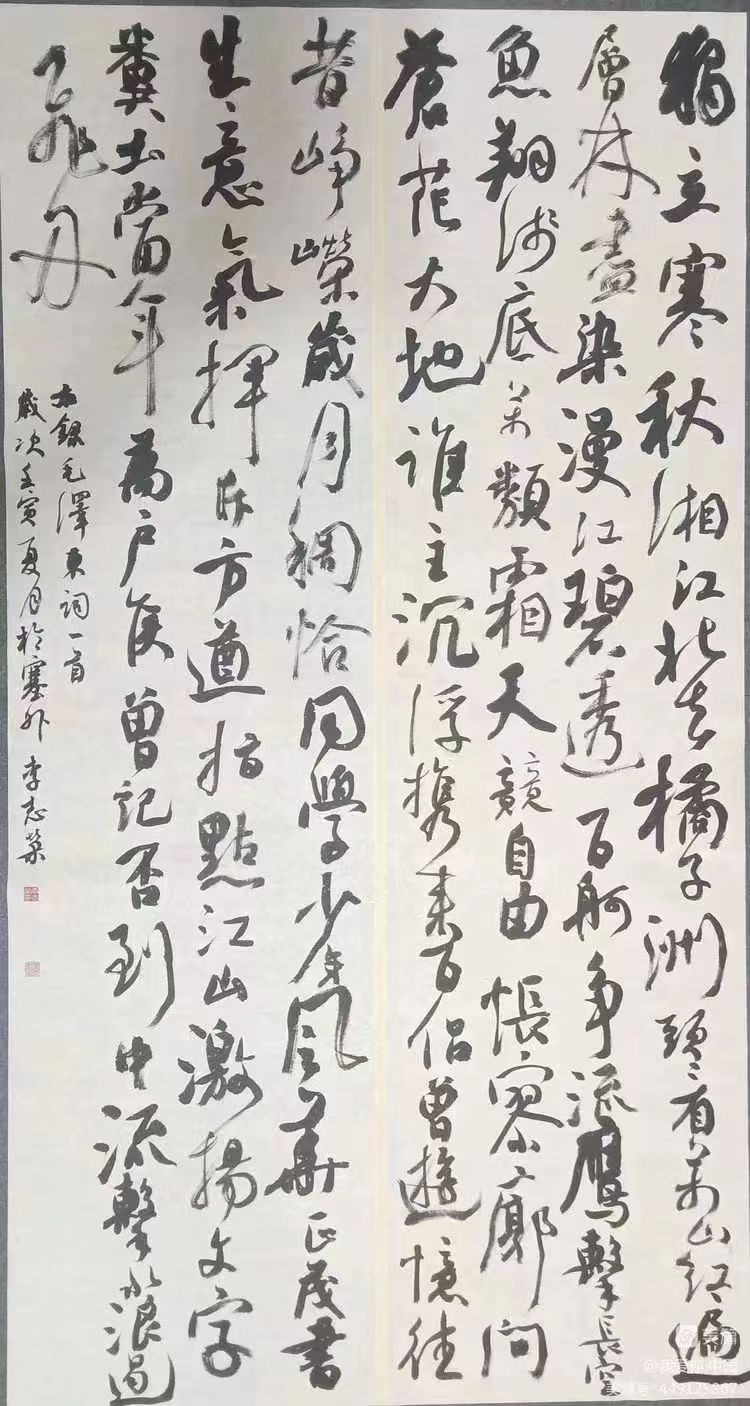 獨立寒秋湘江北去橘子洲頭看万山红遍
層林盡染漫江碧透百舸争流鷹擊長空
魚翔浅底万類霜天競自由悵寥廓问
蒼茫大地谁主沉浮携来百侣曾遊憶往
昔崢嶸歲月稠恰同學少年風華正茂書
生意氣揮斥方遒指點江山激揚文字
糞土當年萬户侯曾記否到中流擊水浪遏
飛舟
右錄毛澤東詞一首
歲次壬寅夏月於塞外李志榮
美篇
@我爱你中国
美篇号 449125807